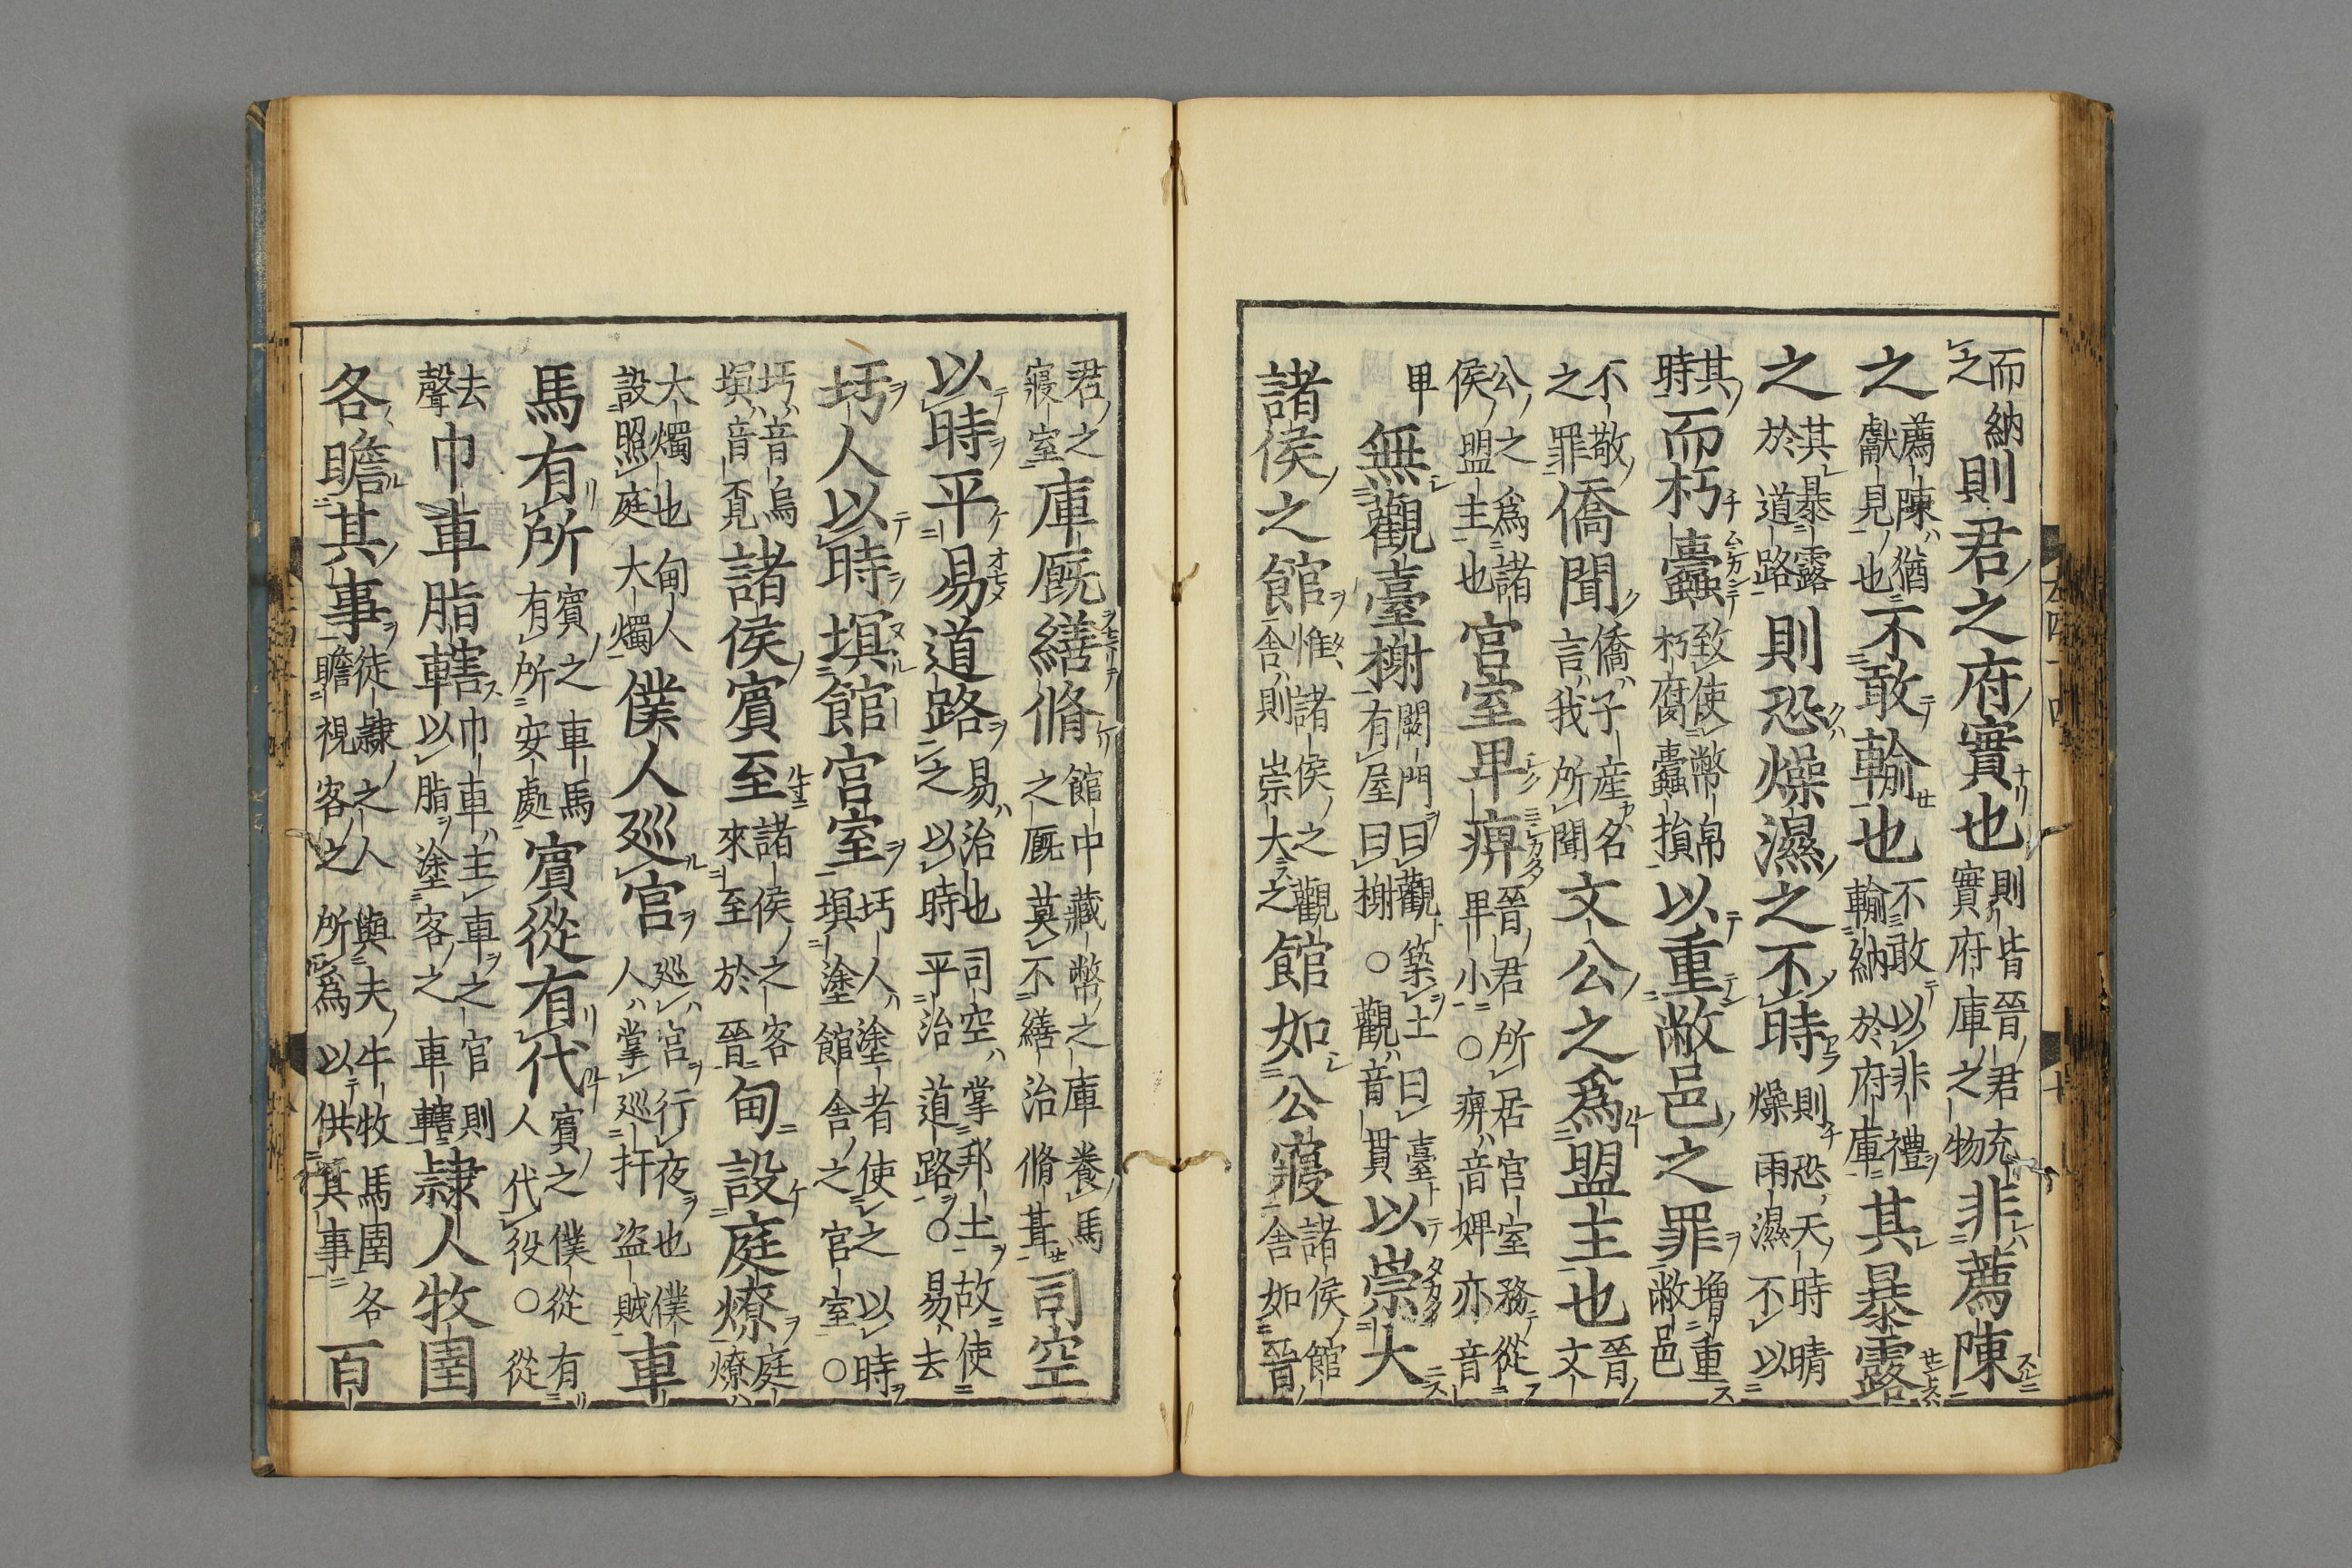 而納之則君之府實也則皆晉君充實府庫之物非薦陳
之薦陳猶獻見也不敢輸也不敢以非禮輸納於府庫其暴露
之其暴露於道路則恐燥濕之不時則恐天時晴燥雨濕不以
其時而朽蠹致使幣帛朽腐蠹損以重敝邑之罪增重敝邑
不敬之罪僑聞僑子產名言我所聞文公之爲盟主也晉文
公之爲諸侯盟主也宮室卑痺晉君所居宮室務從卑小○痺音婢亦音
卑無觀臺榭闕門曰觀築土曰臺有屋曰榭○觀音貫以崇大
諸侯之館惟諸侯之觀舍則崇大之館如公寢諸侯館舍如晉
君之寢室庫厩繕脩館中藏幣之庫養馬之厩莫不繕治脩葺司空
以時平易道路易治也司空掌邦土故使之以時平治道路○易去
圬人以時塓館宮室圬人塗者使之以時塓塗館舍之官室○
圬音烏塓音覔諸侯賓至諸侯之客來至於晉甸設庭燎庭燎
大燭也甸人設照庭大燭僕人巡宮巡宮行夜也僕人掌巡扞盜賊車
馬有所賓之車馬有所安處賓從有代賓之僕從有人代役○從
去聲巾車脂轄巾車主車之官則以脂塗客之車轄隸人牧圉
各瞻其事徒隸之人與夫牛牧馬圉各瞻視客之所爲以供其事百